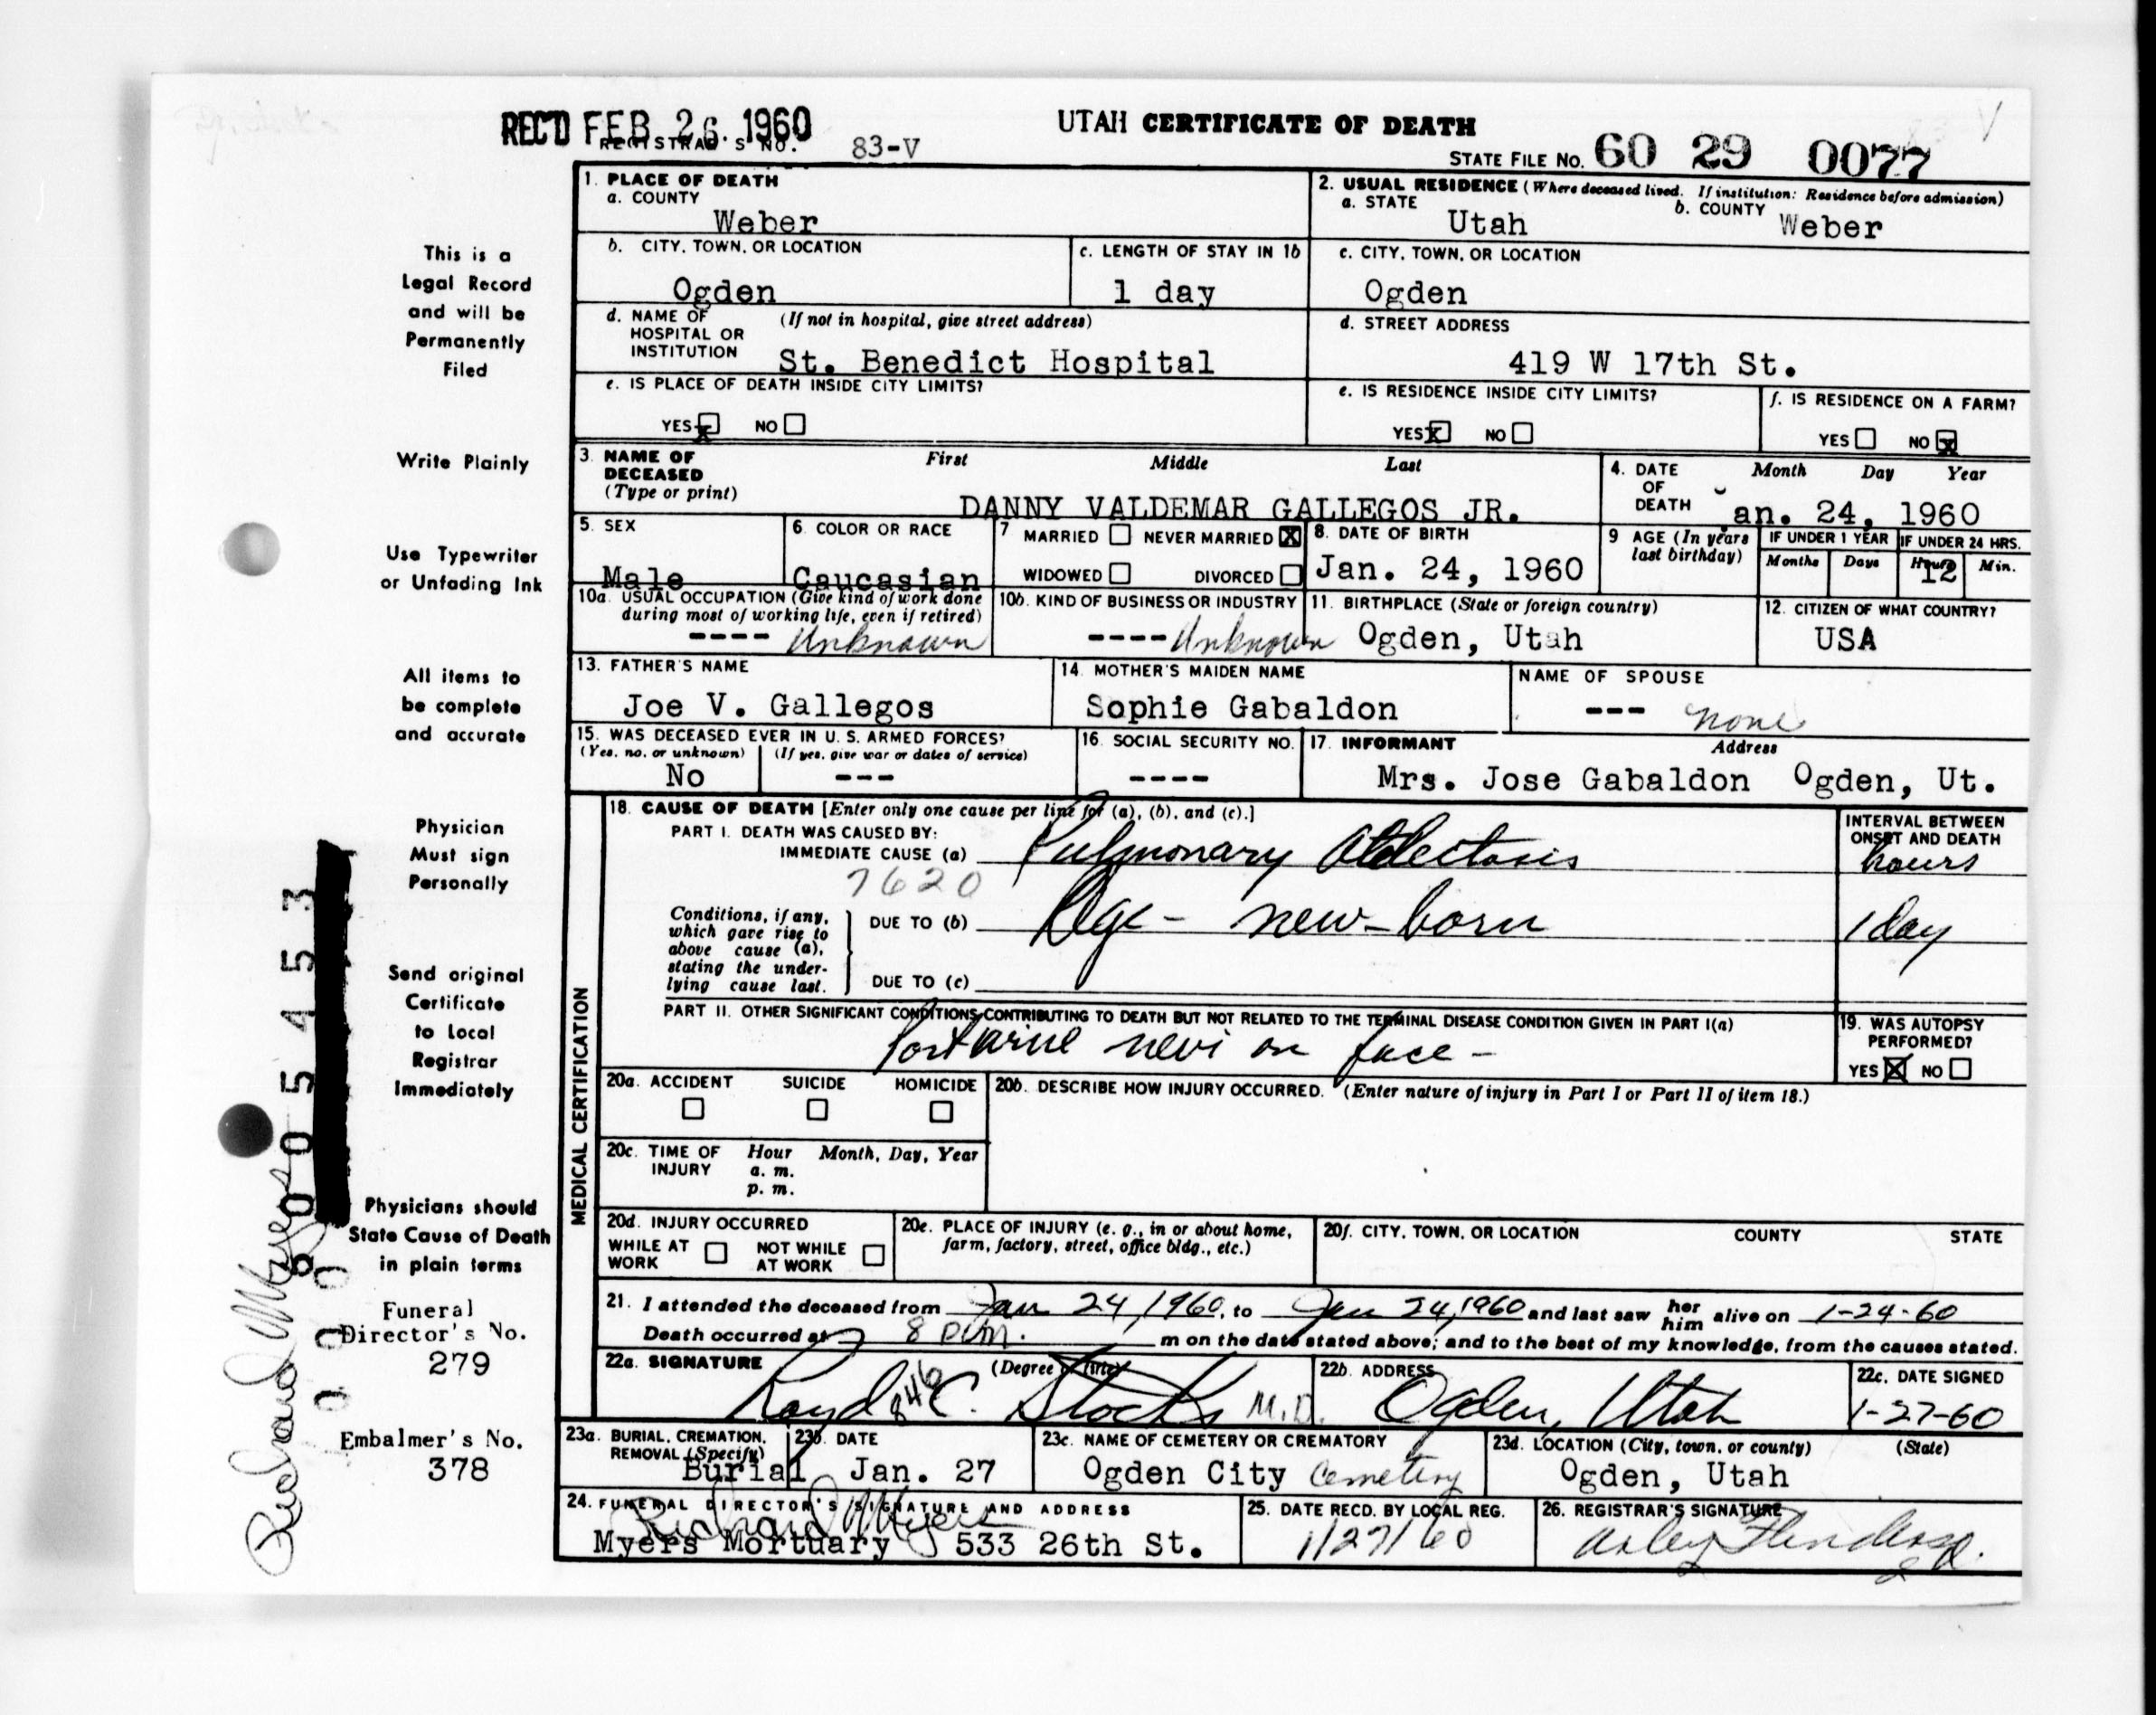 REC'D FEB. 26. 1960
REGISTRAR'S NO. 83-V
UTAH CERTIFICATE OF DEATH
STATE FILE NO. 60 29 0077
This is a
Legal Record
and will be
Permanently
Filed
Write Plainly
Use Typewriter
or Unfading Ink
All items to
be complete
and accurate
Physician
Must sign
Personally
Send original
Certificate
to Local
Registrar
Immediately
Physicians should
State Cause of Death
in plain terms
Funeral
Director's No.
279
Embalmer's No.
378
Richard Myers
1. PLACE OF DEATH
a. COUNTY
Weber
2. USUAL RESIDENCE (Where deceased lived. If institution: Residence before admission)
a. STATE Utah b. COUNTY Weber
b. CITY, TOWN, OR LOCATION
Ogden
c. LENGTH OF STAY IN 1b
1 day
c. CITY, TOWN, OR LOCATION
Ogden
d. NAME OF HOSPITAL OR INSTITUTION (If not in hospital, give street address)
St. Benedict Hospital
d. STREET ADDRESS
419 W 17th St.
e. IS PLACE OF DEATH INSIDE CITY LIMITS?
YES X NO
e. IS RESIDENCE INSIDE CITY LIMITS?
YES X NO
f. IS RESIDENCE ON A FARM?
YES NO X
3. NAME OF DECEASED (Type or print) First Middle Last
DANNY VALDEMAR GALLEGOS JR.
4. DATE OF DEATH Month Day Year
Jan. 24, 1960
5. SEX
Male
6. COLOR OR RACE
Caucasian
7 MARRIED NEVER MARRIED X
WIDOWED DIVORCED
8. DATE OF BIRTH
Jan. 24, 1960
9 AGE (In years last birthday)
IF UNDER 1 YEAR IF UNDER 24 HRS.
Months Days Hours Min.
12
10a. USUAL OCCUPATION (Give kind of work done during most of working life, even if retired)
---- Unknown
10b. KIND OF BUSINESS OR INDUSTRY
---- Unknown
11. BIRTHPLACE (State or foreign country)
Ogden, Utah
12. CITIZEN OF WHAT COUNTRY?
USA
13. FATHER'S NAME
Joe V. Gallegos
14. MOTHER'S MAIDEN NAME
Sophie Gabaldon
NAME OF SPOUSE
--- none
15. WAS DECEASED EVER IN U. S. ARMED FORCES?
(Yes, no, or unknown) (If yes, give war or dates of service)
No ---
16. SOCIAL SECURITY NO.
----
17. INFORMANT Address
Mrs. Jose Gabaldon Ogden, Ut.
MEDICAL CERTIFICATION
18. CAUSE OF DEATH [Enter only one cause per line for (a), (b), and (c).]
PART I. DEATH WAS CAUSED BY:
IMMEDIATE CAUSE (a) Pulmonary Atelectasis
7620
INTERVAL BETWEEN ONSET AND DEATH
hours
Conditions, if any, which gave rise to above cause (a), stating the underlying cause last.
DUE TO (b) Age - new-born
1 day
DUE TO (c)
PART II. OTHER SIGNIFICANT CONDITIONS CONTRIBUTING TO DEATH BUT NOT RELATED TO THE TERMINAL DISEASE CONDITION GIVEN IN PART I(a)
Port wine nevi on face -
19. WAS AUTOPSY PERFORMED?
YES X NO
20a. ACCIDENT SUICIDE HOMICIDE
20b. DESCRIBE HOW INJURY OCCURRED. (Enter nature of injury in Part I or Part II of item 18.)
20c. TIME OF INJURY Hour Month, Day, Year
a. m.
p. m.
20d. INJURY OCCURRED
WHILE AT WORK NOT WHILE AT WORK
20e. PLACE OF INJURY (e. g., in or about home, farm, factory, street, office bldg., etc.)
20f. CITY, TOWN, OR LOCATION COUNTY STATE
21. I attended the deceased from Jan 24, 1960, to Jan 24, 1960 and last saw her him alive on 1-24-60
Death occurred at 8 p.m. m on the date stated above; and to the best of my knowledge, from the causes stated.
22a. SIGNATURE (Degree or title)
Stocks M.D.
22b. ADDRESS
Ogden, Utah
22c. DATE SIGNED
1-27-60
23a. BURIAL, CREMATION, REMOVAL (Specify)
Burial
23b. DATE
Jan. 27
23c. NAME OF CEMETERY OR CREMATORY
Ogden City Cemetery
23d. LOCATION (City, town, or county) (State)
Ogden, Utah
24. FUNERAL DIRECTOR'S SIGNATURE AND ADDRESS
Richard Myers
Myers Mortuary 533 26th St.
25. DATE RECD. BY LOCAL REG.
1/27/60
26. REGISTRAR'S SIGNATURE